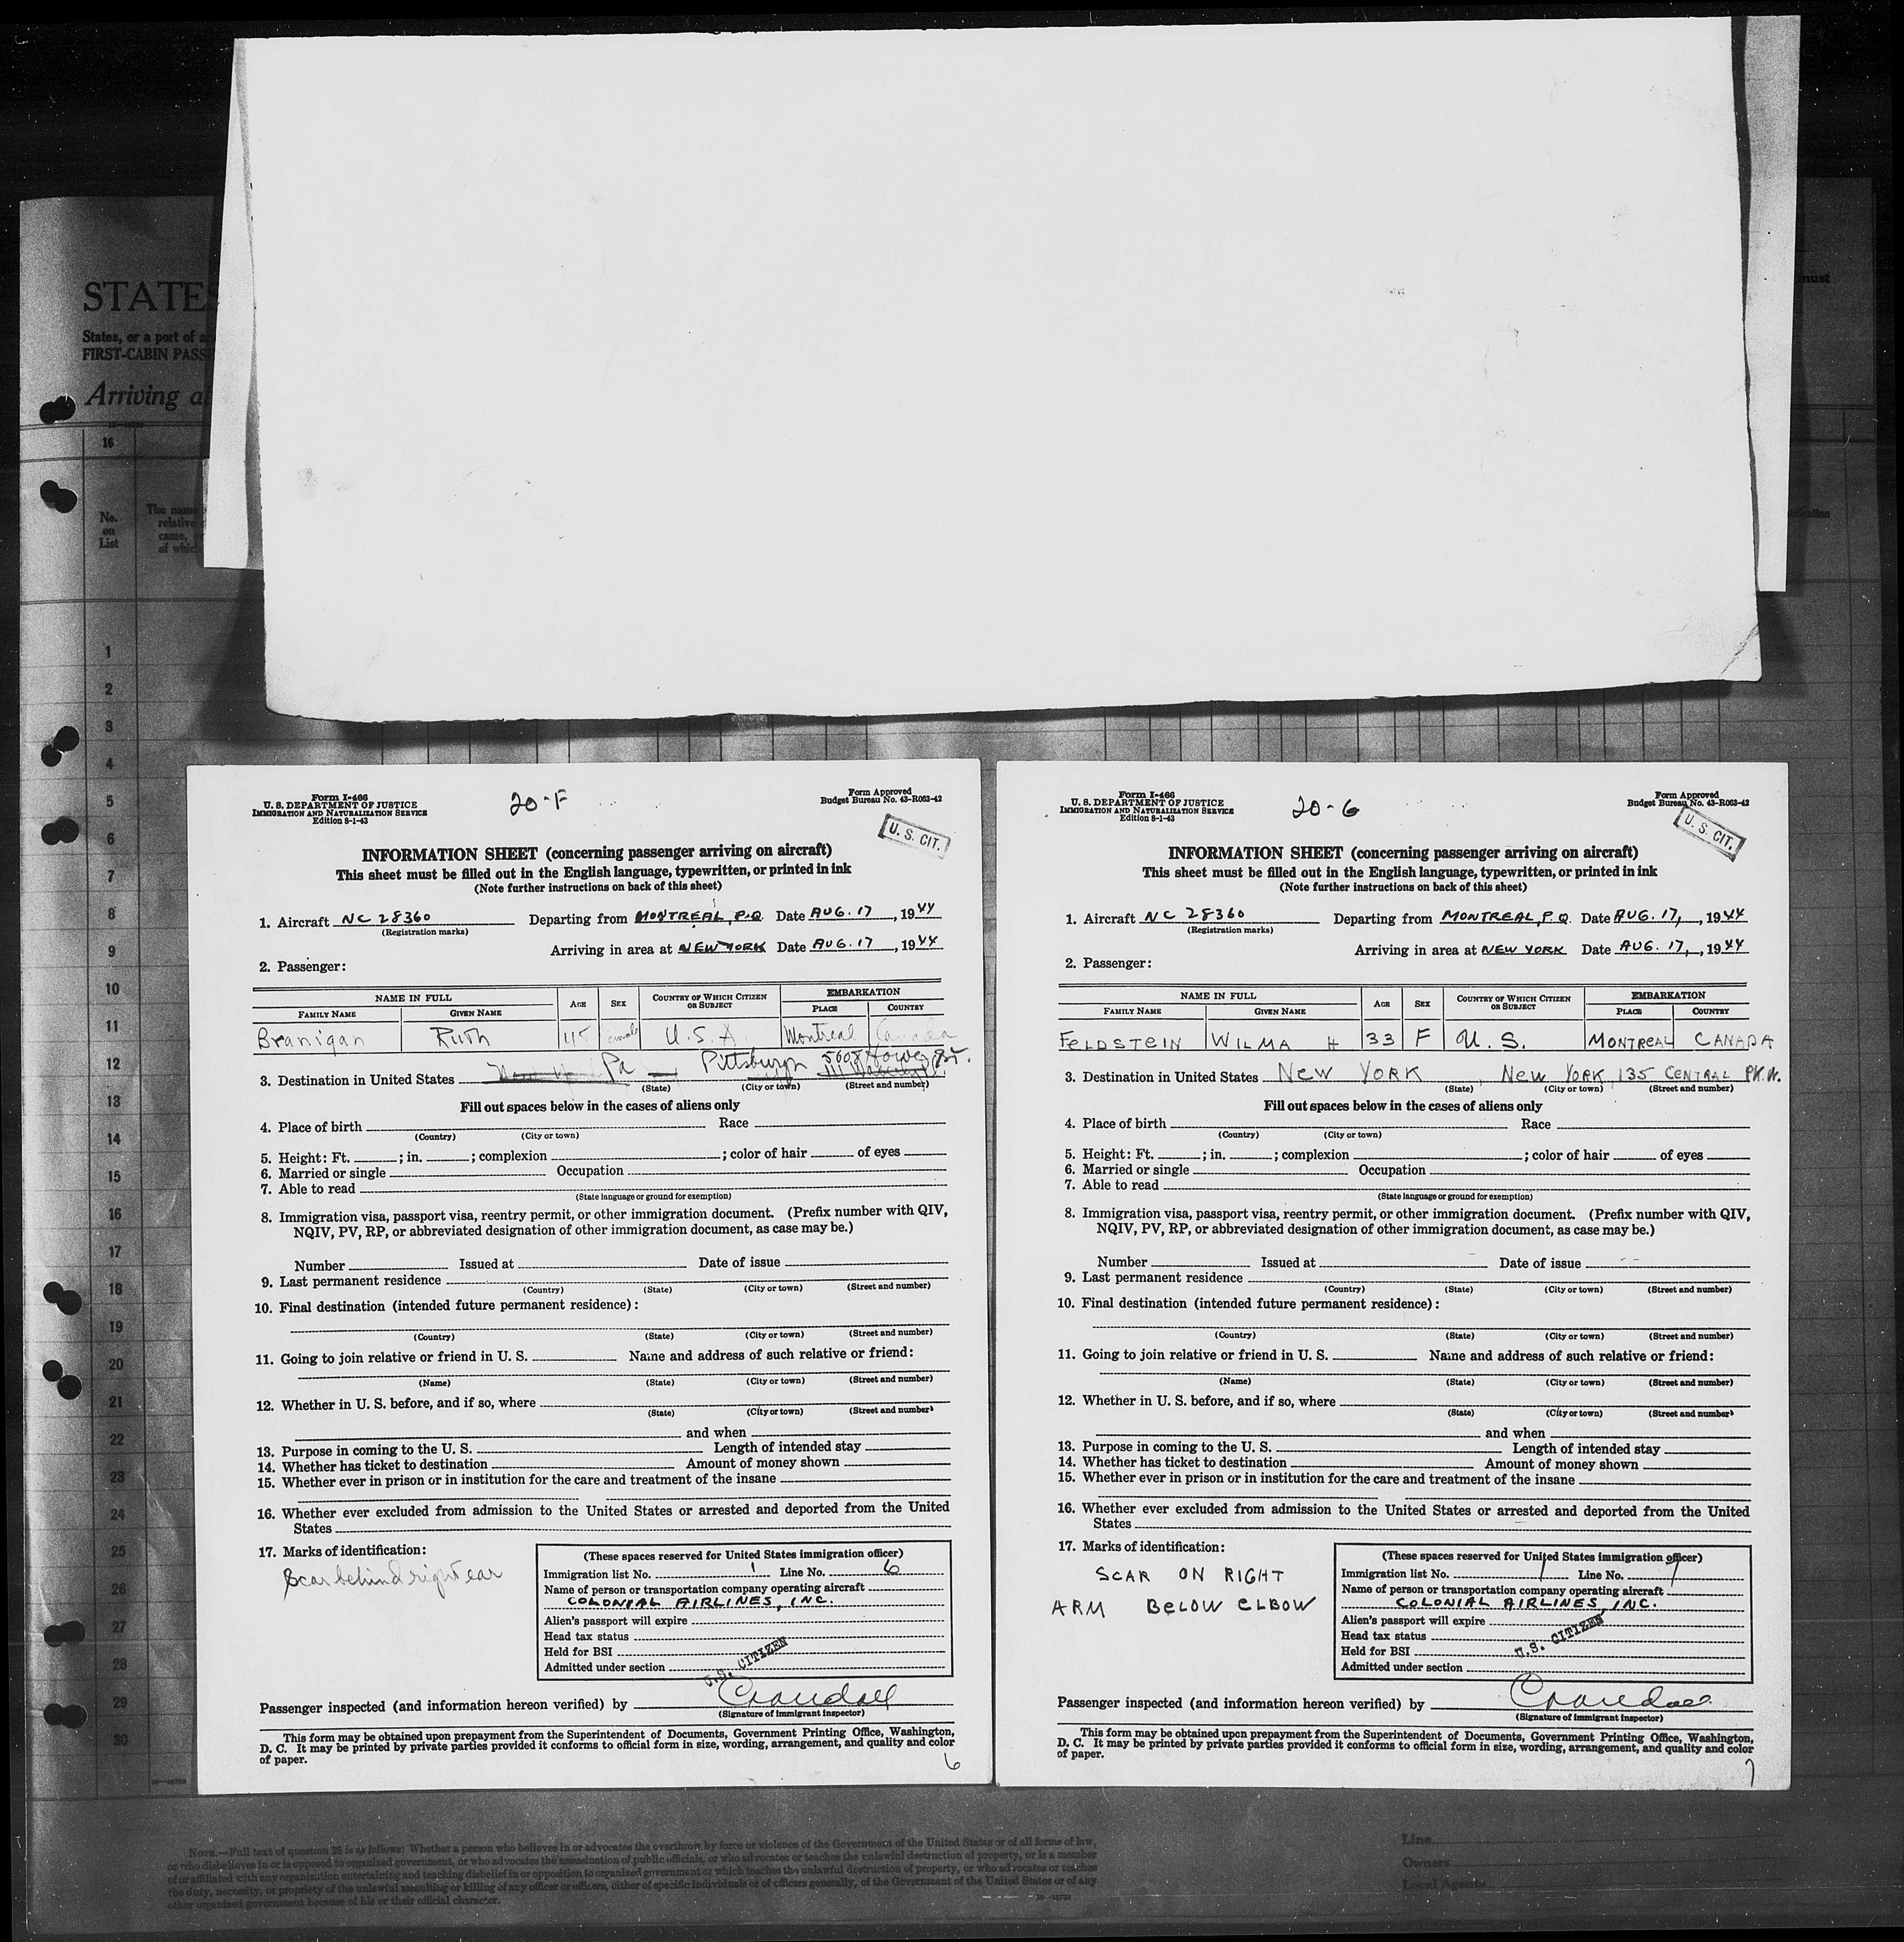 STATES
States, or a part of
FIRST-CABIN PASS
Arriving at
must
16
No.
on
List
The name
relative
came,
of which
1
2
3
4
5
6
7
8
9
10
11
12
13
14
15
16
17
18
19
20
21
22
23
24
25
26
27
28
29
30
Form I-466
U. S. DEPARTMENT OF JUSTICE
IMMIGRATION AND NATURALIZATION SERVICE
Edition 8-1-43
20-F
Form Approved
Budget Bureau No. 43-R063-42
U. S. CIT.
INFORMATION SHEET (concerning passenger arriving on aircraft)
This sheet must be filled out in the English language, typewritten, or printed in ink
(Note further instructions on back of this sheet)
1. Aircraft NC 28360 Departing from MONTREAL, P.Q. Date AUG. 17, 1944
(Registration marks)
Arriving in area at NEW YORK Date AUG. 17, 1944
2. Passenger:
NAME IN FULL AGE SEX COUNTRY OF WHICH CITIZEN OR SUBJECT EMBARKATION
FAMILY NAME GIVEN NAME PLACE COUNTRY
Branigan Ruth 45 female U.S.A. Montreal Canada
3. Destination in United States Pa Pittsburgh 5608 Howe St.
(State) (City or town) (Street and number)
Fill out spaces below in the cases of aliens only
4. Place of birth Race
(Country) (City or town)
5. Height: Ft. ; in. ; complexion ; color of hair of eyes
6. Married or single Occupation
7. Able to read
(State language or ground for exemption)
8. Immigration visa, passport visa, reentry permit, or other immigration document. (Prefix number with QIV,
NQIV, PV, RP, or abbreviated designation of other immigration document, as case may be.)
Number Issued at Date of issue
9. Last permanent residence
(Country) (State) (City or town) (Street and number)
10. Final destination (intended future permanent residence):
(Country) (State) (City or town) (Street and number)
11. Going to join relative or friend in U. S. Name and address of such relative or friend:
(Name) (State) (City or town) (Street and number)
12. Whether in U. S. before, and if so, where
(State) (City or town) (Street and number)
and when
13. Purpose in coming to the U. S. Length of intended stay
14. Whether has ticket to destination Amount of money shown
15. Whether ever in prison or in institution for the care and treatment of the insane
16. Whether ever excluded from admission to the United States or arrested and deported from the United
States
17. Marks of identification:
Scar behind right ear
(These spaces reserved for United States immigration officer)
Immigration list No. 1 Line No. 6
Name of person or transportation company operating aircraft
COLONIAL AIRLINES, INC.
Alien's passport will expire
Head tax status
Held for BSI
Admitted under section
U.S. CITIZEN
Passenger inspected (and information hereon verified) by Crandall
(Signature of immigrant inspector)
This form may be obtained upon prepayment from the Superintendent of Documents, Government Printing Office, Washington,
D. C. It may be printed by private parties provided it conforms to official form in size, wording, arrangement, and quality and color
of paper.
6
Form I-466
U. S. DEPARTMENT OF JUSTICE
IMMIGRATION AND NATURALIZATION SERVICE
Edition 8-1-43
20-G
Form Approved
Budget Bureau No. 43-R063-42
U. S. CIT.
INFORMATION SHEET (concerning passenger arriving on aircraft)
This sheet must be filled out in the English language, typewritten, or printed in ink
(Note further instructions on back of this sheet)
1. Aircraft NC 28360 Departing from MONTREAL, P.Q. Date AUG. 17, 1944
(Registration marks)
Arriving in area at NEW YORK Date AUG. 17, 1944
2. Passenger:
NAME IN FULL AGE SEX COUNTRY OF WHICH CITIZEN OR SUBJECT EMBARKATION
FAMILY NAME GIVEN NAME PLACE COUNTRY
FELDSTEIN WILMA H 33 F U.S. MONTREAL CANADA
3. Destination in United States NEW YORK, NEW YORK, 135 CENTRAL PK. W.
(State) (City or town) (Street and number)
Fill out spaces below in the cases of aliens only
4. Place of birth Race
(Country) (City or town)
5. Height: Ft. ; in. ; complexion ; color of hair of eyes
6. Married or single Occupation
7. Able to read
(State language or ground for exemption)
8. Immigration visa, passport visa, reentry permit, or other immigration document. (Prefix number with QIV,
NQIV, PV, RP, or abbreviated designation of other immigration document, as case may be.)
Number Issued at Date of issue
9. Last permanent residence
(Country) (State) (City or town) (Street and number)
10. Final destination (intended future permanent residence):
(Country) (State) (City or town) (Street and number)
11. Going to join relative or friend in U. S. Name and address of such relative or friend:
(Name) (State) (City or town) (Street and number)
12. Whether in U. S. before, and if so, where
(State) (City or town) (Street and number)
and when
13. Purpose in coming to the U. S. Length of intended stay
14. Whether has ticket to destination Amount of money shown
15. Whether ever in prison or in institution for the care and treatment of the insane
16. Whether ever excluded from admission to the United States or arrested and deported from the United
States
17. Marks of identification:
SCAR ON RIGHT
ARM BELOW ELBOW
(These spaces reserved for United States immigration officer)
Immigration list No. 1 Line No. 7
Name of person or transportation company operating aircraft
COLONIAL AIRLINES, INC.
Alien's passport will expire
Head tax status
Held for BSI
Admitted under section
U.S. CITIZEN
Passenger inspected (and information hereon verified) by Crandall
(Signature of immigrant inspector)
This form may be obtained upon prepayment from the Superintendent of Documents, Government Printing Office, Washington,
D. C. It may be printed by private parties provided it conforms to official form in size, wording, arrangement, and quality and color
of paper.
7
NOTE.—Full text of question 28 is as follows: Whether a person who believes in or advocates the overthrow by force or violence of the Government of the United States or of all forms of law,
or who disbelieves in or is opposed to organized government, or who advocates the assassination of public officials, or who advocates or teaches the unlawful destruction of property, or is a member
of or affiliated with any organization entertaining and teaching disbelief in or opposition to organized government or which teaches the unlawful destruction of property, or who advocates or teaches
the duty, necessity, or propriety of the unlawful assaulting or killing of any officer or officers, either of specific individuals or of officers generally, of the Government of the United States or of any
other organized government because of his or their official character.
Line
Owners
Local Agents